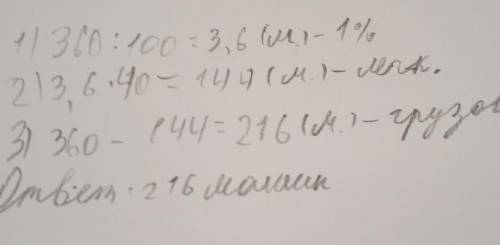 1) 360 : 100 = 3,6 (м.) - 1%
2) 3,6 · 40 = 144 (м.) - легк.
3) 360 - 144 = 216 (м.) - грузов
Ответ: 216 машин